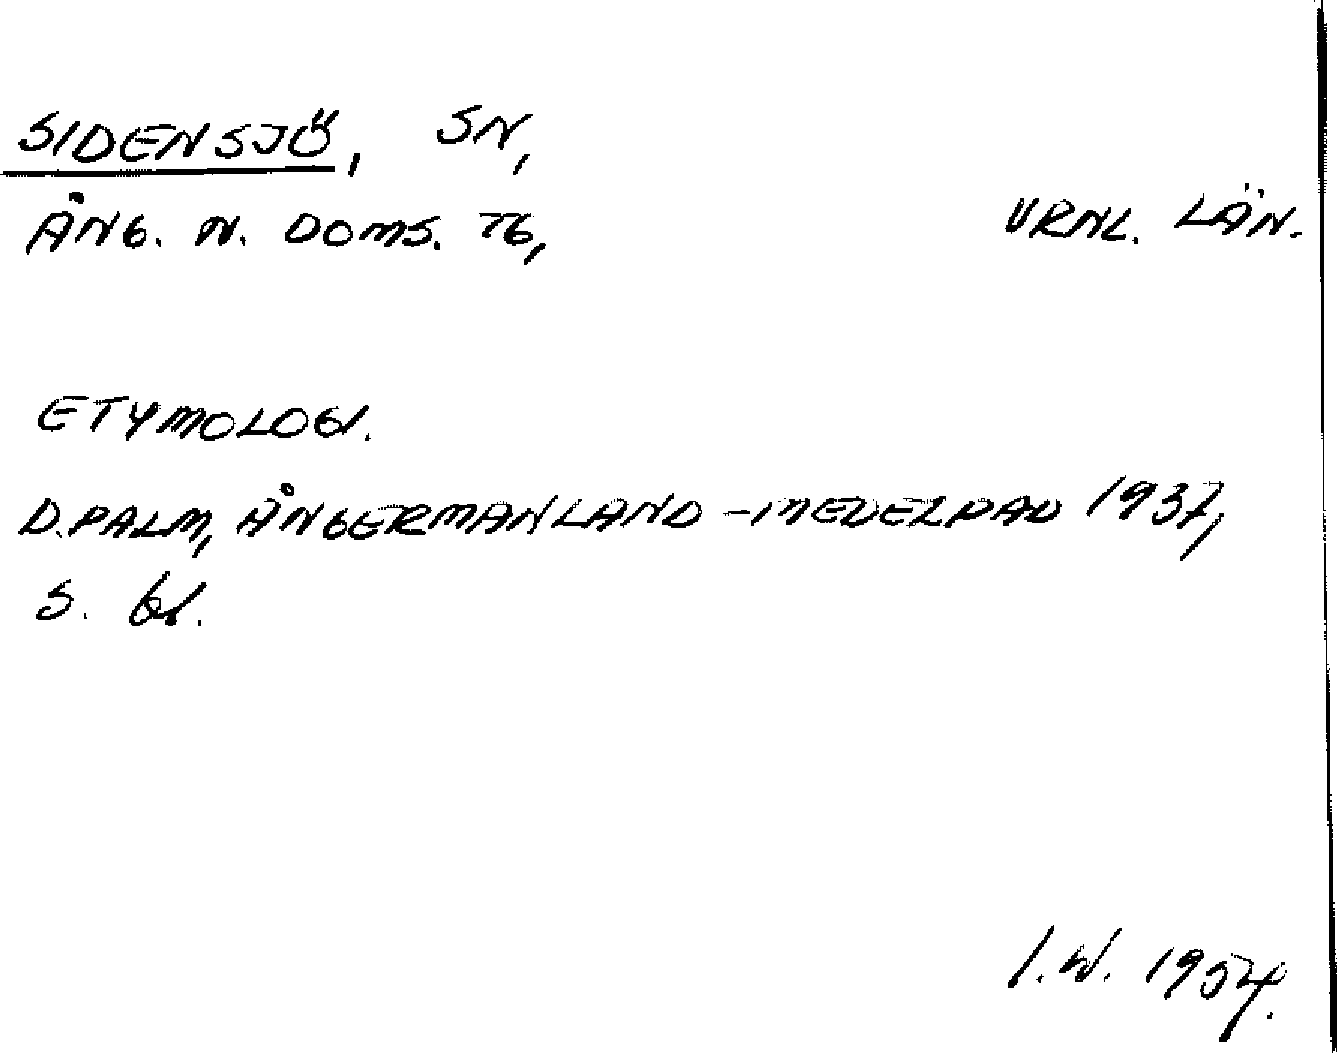 SIDENSJÖ, SN,
ÅNG. N. DOMS. TG, VRNL. LÄN.
ETYMOLOGI.
D. PALM, ÅNGERMANLAND - MEDELPAD 1937,
S. 61.
I. W. 1954.